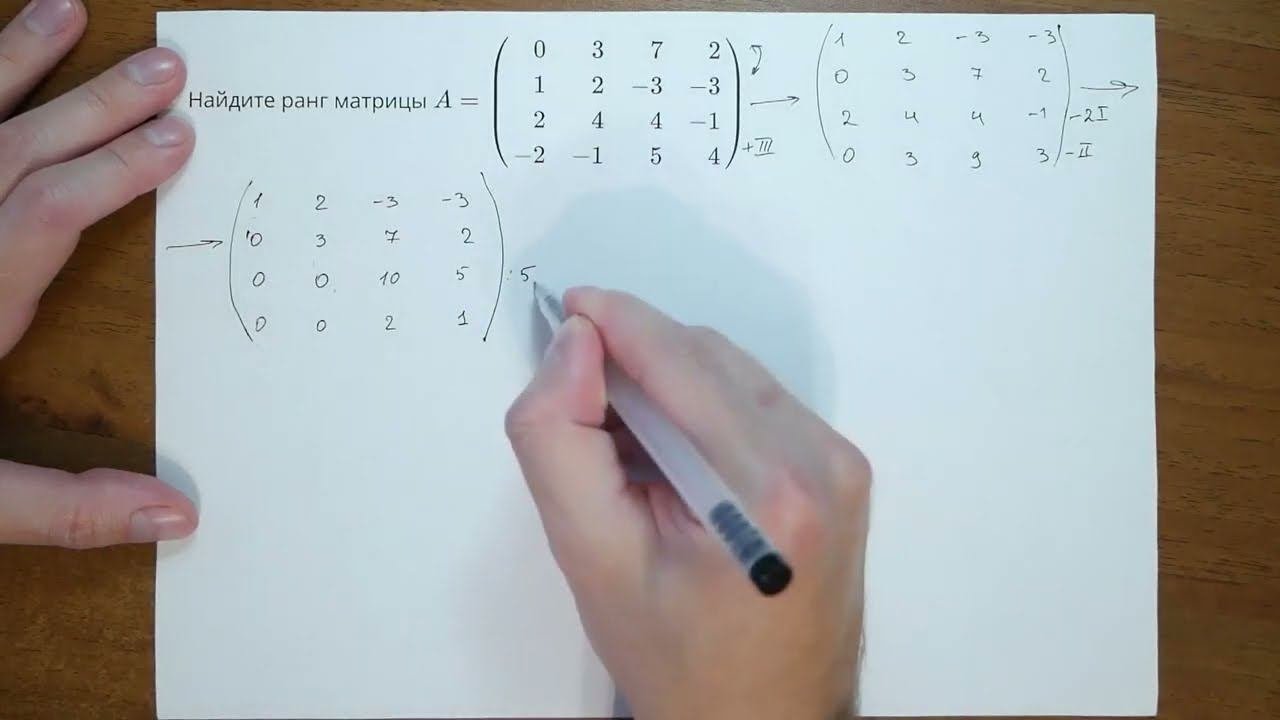 Найдите ранг матрицы A =
0 3 7 2
1 2 −3 −3
2 4 4 −1
−2 −1 5 4 +III
→
1 2 −3 −3
0 3 7 2
2 4 4 −1 −2I
0 3 9 3 −II
→
→
1 2 −3 −3
0 3 7 2
0 0 10 5 :5
0 0 2 1